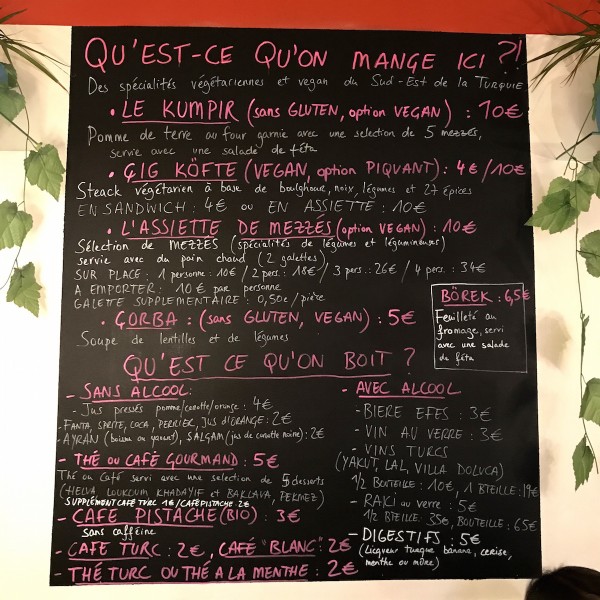 QU'EST-CE QU'ON MANGE ICI ?!
Des spécialités végétariennes et vegan du Sud-Est de la TURQUIE
• LE KUMPIR (sans GLUTEN, option VEGAN) : 10€
Pomme de terre au four garnie avec une selection de 5 mezzés,
servie avec une salade de féta
• ÇIG KÖFTE (VEGAN, option PIQUANT) : 4€/10€
Steack végétarien à base de boulghour, noix, légumes et 27 épices
EN SANDWICH : 4€ ou EN ASSIETTE : 10€
• L'ASSIETTE DE MEZZÉS (option VEGAN) : 10€
Sélection de MEZZES (spécialités de légumes et légumineuses)
servie avec du pain chaud (2 galettes)
SUR PLACE : 1 personne : 10€ / 2 pers. : 18€ / 3 pers. : 26€ / 4 pers. : 34€
A EMPORTER : 10€ par personne
GALETTE SUPPLEMENTAIRE : 0,50€ / pièce
• ÇORBA : (sans GLUTEN, VEGAN) : 5€
Soupe de lentilles et de légumes
BÖREK : 6,5€
Feuilleté au
fromage, servi
avec une salade
de féta
QU'EST CE QU'ON BOIT ?
- SANS ALCOOL :
- Jus pressés pomme/carotte/orange : 4€
- FANTA, SPRITE, COCA, PERRIER, JUS D'ORANGE : 2€
- AYRAN (boisson au yaourt), SALGAM (jus de carotte noire) : 2€
- THÉ OU CAFÉ GOURMAND : 5€
Thé ou Café servi avec une sélection de 5 desserts
(HELVA, LOUKOUM, KHADAYIF et BAKLAVA, PEKMEZ)
SUPPLÉMENT CAFÉ TURC 1€/CAFÉ PISTACHE 2€
- CAFE PISTACHE (BIO) : 3€
sans cafféine
- CAFE TURC : 2€, CAFÉ "BLANC" : 2€
- THÉ TURC OU THÉ A LA MENTHE : 2€
- AVEC ALCOOL
- BIERE EFES : 3€
- VIN AU VERRE : 3€
- VINS TURCS
(YAKUT, LAL, VILLA DOLUCA)
1/2 BOUTEILLE : 10€, 1 BTEILLE : 19€
- RAKI au verre : 5€
1/2 BTEILLE : 35€, BOUTEILLE : 65€
- DIGESTIFS : 5€
(Liqueur turque banane, cerise,
menthe ou mûre)